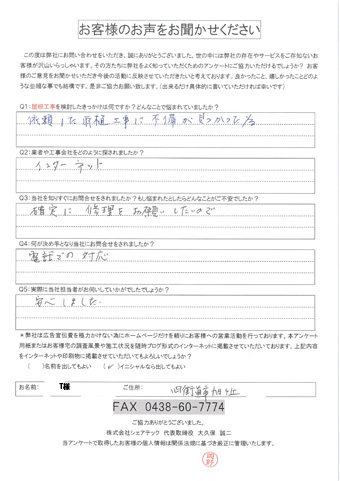 お客様のお声をお聞かせください
この度は弊社にお問い合わせをいただき、誠にありがとうございました。世の中には弊社の存在やサービスをご存知ないお
客様が沢山いらっしゃいます。その方たちに弊社をよく知っていただくためのアンケートにご協力いただけるでしょうか?お客
様のご意見をお聞かせいただき今後の活動に反映させていただきたいと考えております。良かったこと、嬉しかったことどのよ
うな些細な事でも結構です。是非ご協力お願い致します。(出来るだけ具体的に書いていただければ幸いです)
Q1:屋根工事を検討したきっかけは何ですか?どんなことで悩まれていましたか?
依頼した屋根工事に不備が見つかった為
Q2:業者や工事会社をどのように探されましたか?
インターネット
Q3:当社を知りすぐにお問合せをされましたか?もし悩まれたとしたらどんなことがご不安でしたか?
確実に修理をお願いしたいので
Q4:何が決め手となり当社にお問合せをされましたか?
電話での対応
Q5:実際に当社担当者がお伺いしていかがでしたでしょうか?
安心しました.
*弊社は広告宣伝費を極力かけない為にホームページだけを頼りにお客様への営業活動を行っております。本アンケート
用紙またはお客様宅の調査風景や施工状況を随時ブログ形式のインターネットに掲載させていただいております。上記内容
をインターネットや印刷物に掲載させていただいてもよろしいでしょうか?
( )名前を出してもよい (✓)イニシャルなら出してもよい
お名前: T様 ご住所: 四街道市旭ヶ丘
FAX 0438-60-7774
ご協力ありがとうございました。
株式会社シェアテック 代表取締役 大久保 誠二
当アンケートで取得したお客様の個人情報は関係法規に基づき厳正に管理いたします。